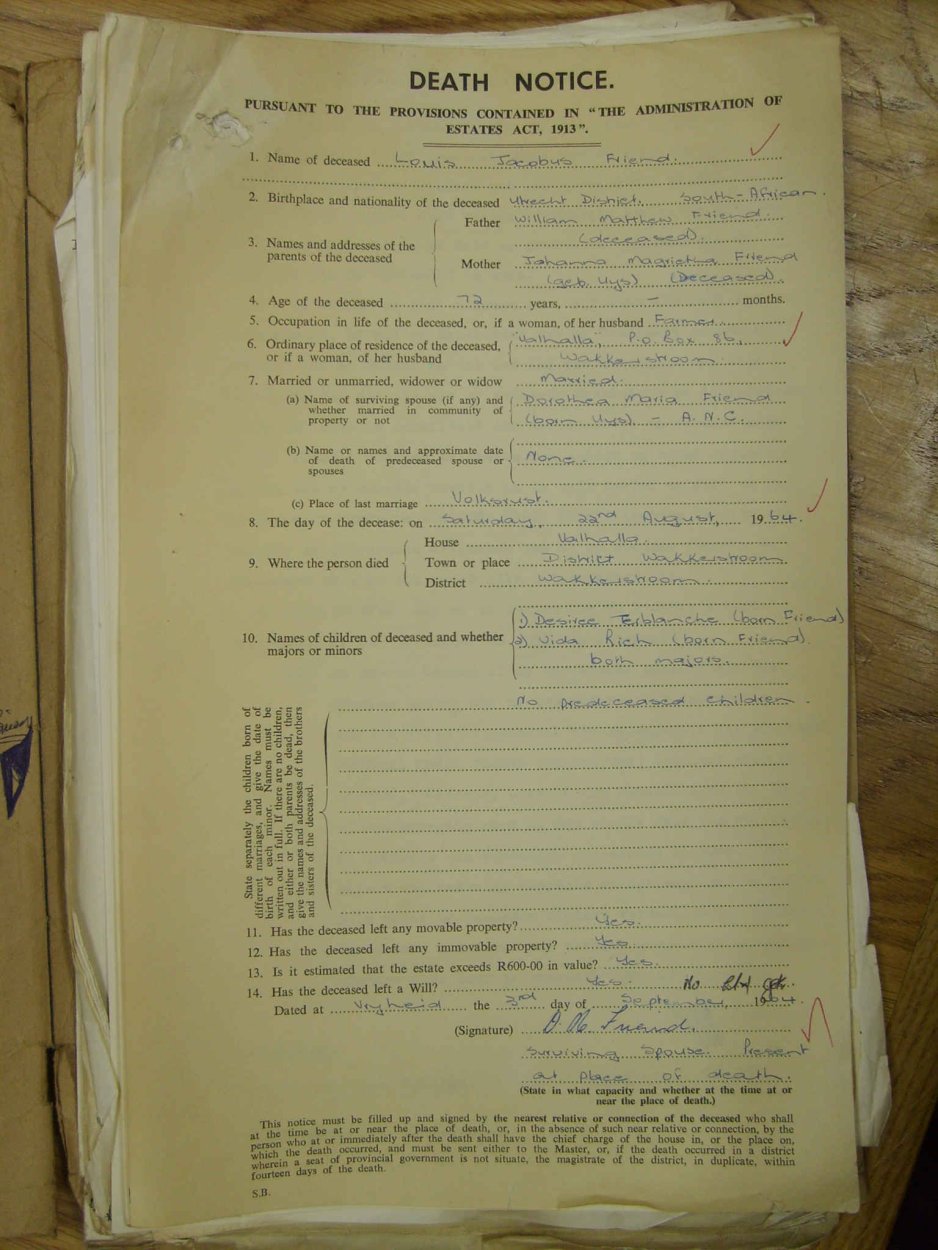 DEATH NOTICE.
PURSUANT TO THE PROVISIONS CONTAINED IN "THE ADMINISTRATION OF
ESTATES ACT, 1913".
1. Name of deceased Louis Jacobus Friend.
2. Birthplace and nationality of the deceased Utrecht District. South-African.
3. Names and addresses of the parents of the deceased
Father William Matthew Friend.
(deceased).
Mother Johanna Magrietha Friend
(geb. Uys) (Deceased).
4. Age of the deceased 72 years, – months.
5. Occupation in life of the deceased, or, if a woman, of her husband Farmer.
6. Ordinary place of residence of the deceased, "Valhalla", P.O. Box 86,
or if a woman, of her husband Wakkerstroom
7. Married or unmarried, widower or widow Married.
(a) Name of surviving spouse (if any) and whether married in community of property or not
Dorothea Maria Friend
(born Uys) – A.N.C.
(b) Name or names and approximate date of death of predeceased spouse or spouses
None.
(c) Place of last marriage Volksrust.
8. The day of the decease: on Saturday, 22nd August, 1964.
9. Where the person died
House Valhalla.
Town or place District Wakkerstroom
District Wakkerstroom.
10. Names of children of deceased and whether majors or minors
1) Desiree Terblanche (born Friend)
2) Vida Rich (born Friend).
both majors.
No predeceased children.
State separately the children born of
different marriages, and give the date of
birth of each minor. Names must be
written out in full. If there are no children,
and either or both parents be dead, then
give the names and addresses of the brothers
and sisters of the deceased.
11. Has the deceased left any movable property? Yes.
12. Has the deceased left any immovable property? Yes
13. Is it estimated that the estate exceeds R600-00 in value? Yes.
14. Has the deceased left a Will? Yes. No
Dated at Vryheid the 3rd day of September, 1964.
(Signature) Friend.
Surviving Spouse. Present
at place of death.
(State in what capacity and whether at the time at or
near the place of death.)
This notice must be filled up and signed by the nearest relative or connection of the deceased who shall
at the time be at or near the place of death, or, in the absence of such near relative or connection, by the
person who at or immediately after the death shall have the chief charge of the house in, or the place on,
which the death occurred, and must be sent either to the Master, or, if the death occurred in a district
wherein a seat of provincial government is not situate, the magistrate of the district, in duplicate, within
fourteen days of the death.
S.B.